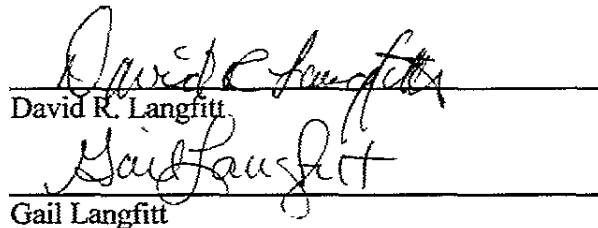 David R Langfitt
David R. Langfitt
Gail Langfitt
Gail Langfitt